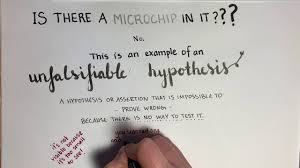 IS THERE A MICROCHIP IN IT???
No.
This is an example of an
unfalsifiable hypothesis
A HYPOTHESIS OR ASSERTION THAT IS IMPOSSIBLE TO
- PROVE WRONG -
BECAUSE THERE IS NO WAY TO TEST IT.
it's not
visible because
it's too small
to see!